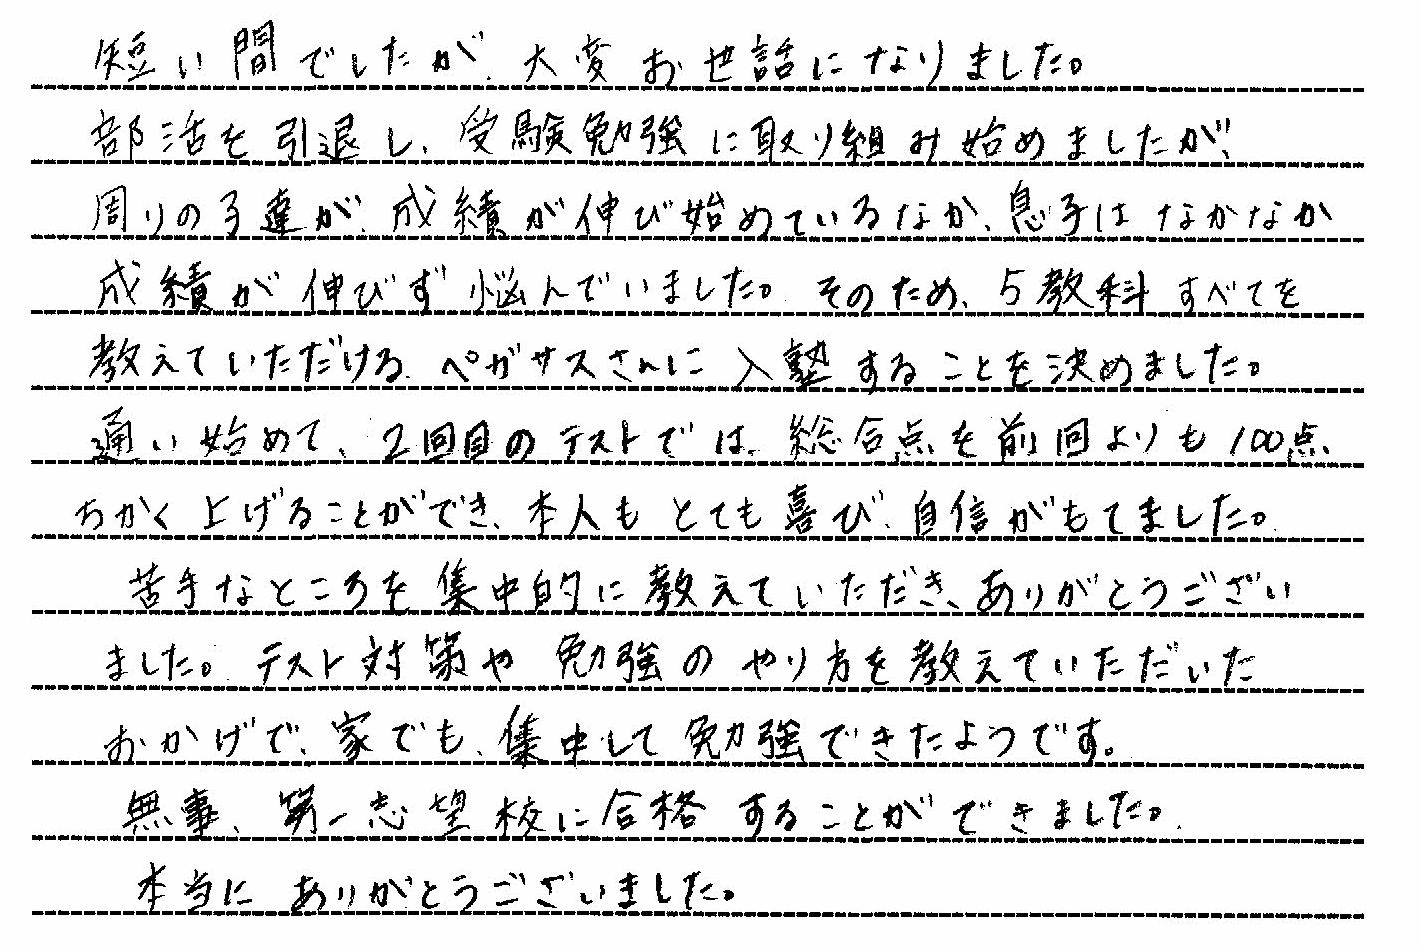 短い間でしたが、大変お世話になりました。
部活を引退し、受験勉強に取り組み始めましたが、
周りの子達が、成績が伸び始めているなか、息子はなかなか
成績が伸びず悩んでいました。そのため、5教科すべてを
教えていただける、ペガサスさんに入塾することを決めました。
通い始めて、2回目のテストでは、総合点を前回よりも100点
ちかく上げることができ、本人もとても喜び、自信がもてました。
苦手なところを集中的に教えていただき、ありがとうござい
ました。テスト対策や勉強のやり方を教えていただいた
おかげで、家でも、集中して勉強できたようです。
無事、第一志望校に合格することができました。
本当にありがとうございました。